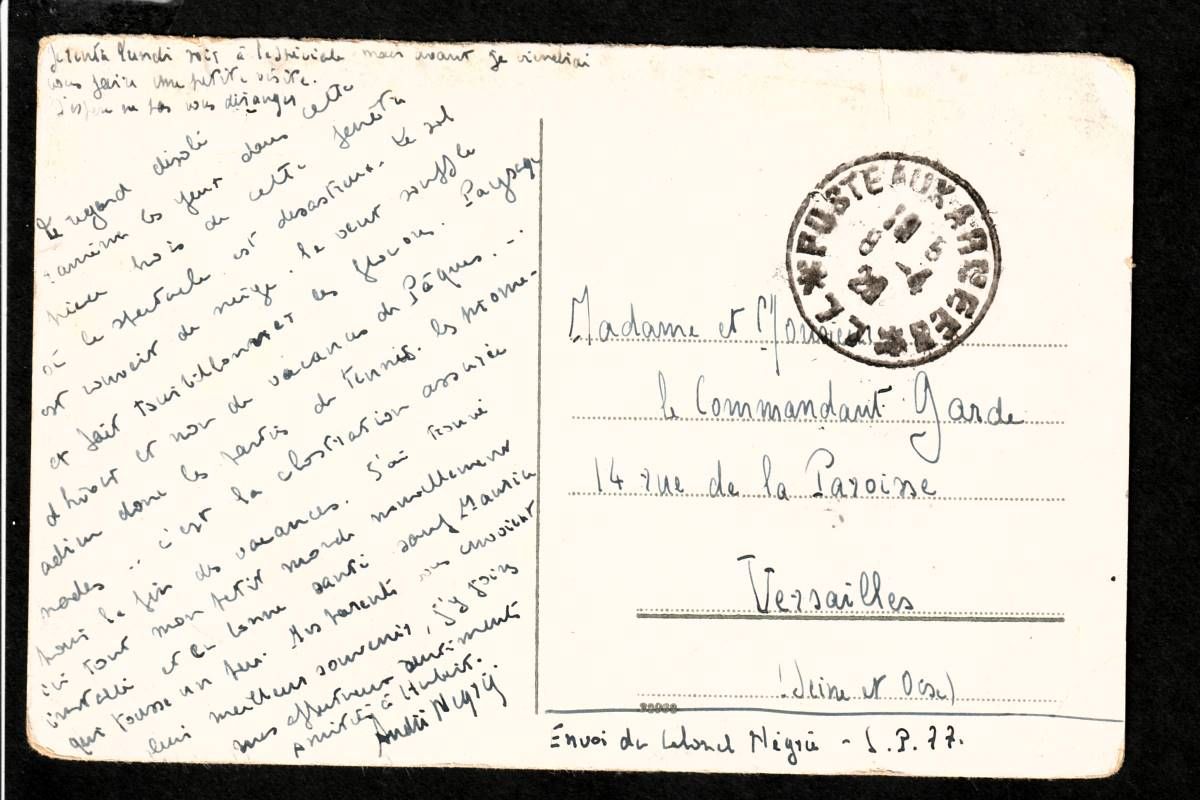 lundi soir à mais avant je viendrai
vous faire une petite visite.
J'espère ne pas vous déranger
Le regard désolé
j'arrête les yeux dans cette
pièce hors de cette fenêtre
où le spectacle est désastreux. Le sol
est couvert de neige. le vent souffle
et fait tourbillonner les flocons. Paysage
d'hiver et non de vacances de Pâques...
adieu donc les parties de tennis. les prome-
nades... c'est la claustration assurée
pour la fin des vacances. J'ai trouvé
ici tout mon petit monde nouvellement
installé et en bonne santé sauf Maurice
qui tousse un peu. Mes parents vous envoient
leurs meilleurs souvenirs, j'y joins
mes affectueux sentiments
amitié à Hubert.
André Négrié
POSTE AUX ARMEES
Madame et Monsieur
le Commandant Garde
14 rue de la Paroisse
Versailles
(Seine et Oise)
Envoi du Colonel Négrié - S.P. 77.